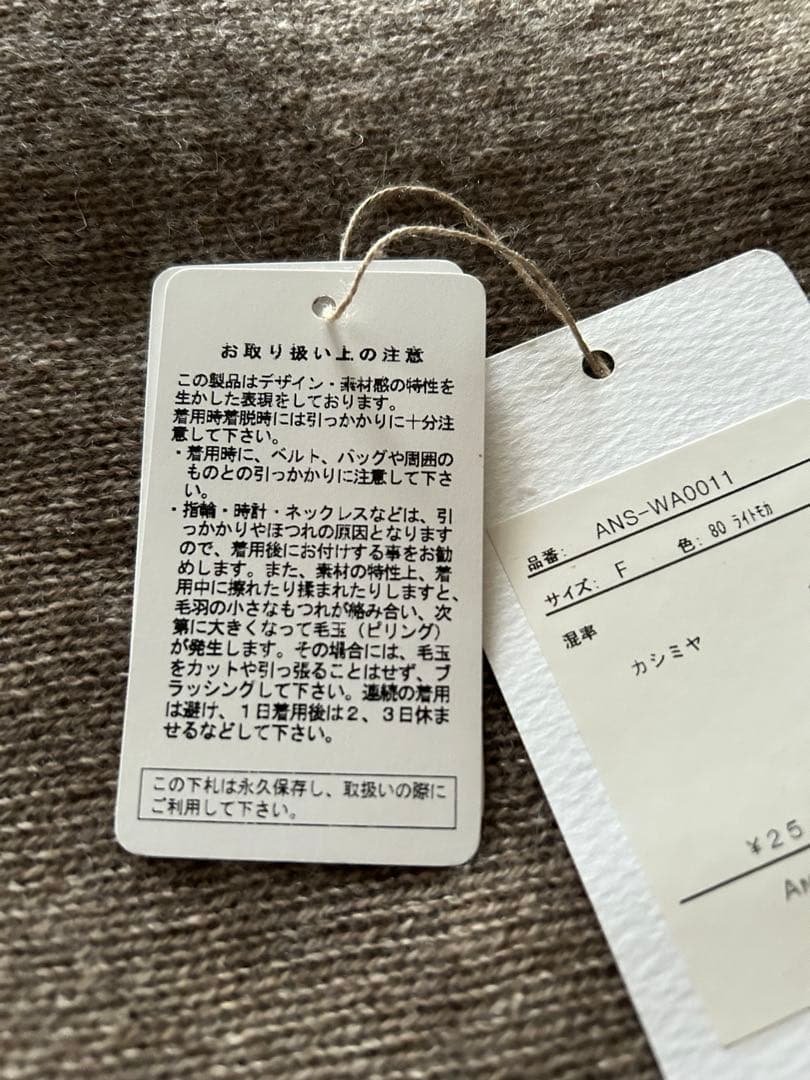 お取り扱い上の注意
この製品はデザイン・素材感の特性を
生かした表現をしております。
着用時着脱時には引っかかりに十分注
意して下さい。
・着用時に、ベルト、バッグや周囲の
ものとの引っかかりに注意して下さ
い。
・指輪・時計・ネックレスなどは、引
っかかりやほつれの原因となります
ので、着用後にお付けする事をお勧
めします。また、素材の特性上、着
用中に擦れたり揉まれたりしますと、
毛羽の小さなもつれが絡み合い、次
第に大きくなって毛玉（ピリング）
が発生します。その場合には、毛玉
をカットや引っ張ることはせず、ブ
ラッシングして下さい。連続の着用
は避け、１日着用後は２、３日休ま
せるなどして下さい。
この下札は永久保存し、取扱いの際に
ご利用して下さい。
品番: ANS-WA0011
サイズ: F 色: 80 ライトモカ
混率
カシミヤ
¥25
AN